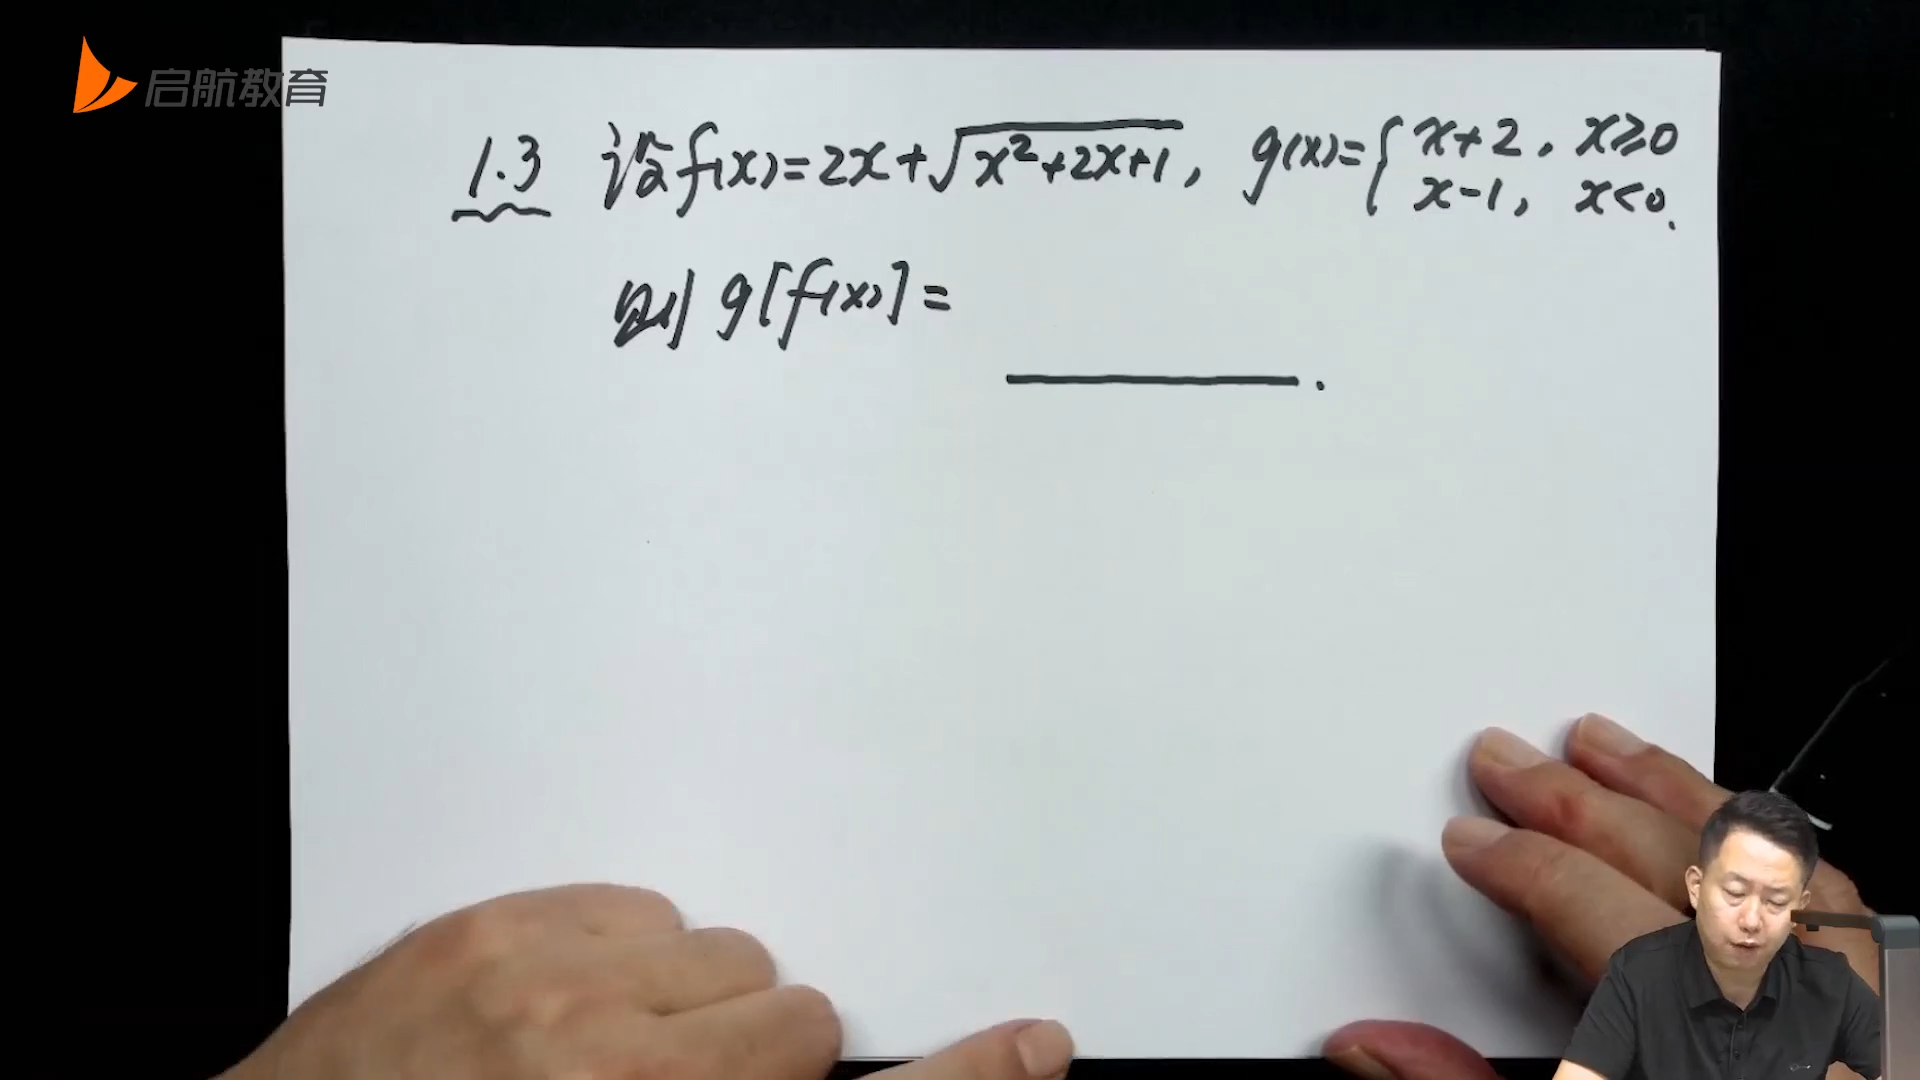 启航教育
1.3 设f(x)=2x+√(x²+2x+1), g(x)={x+2, x≥0
x-1, x<0.
则g[f(x)]=________.